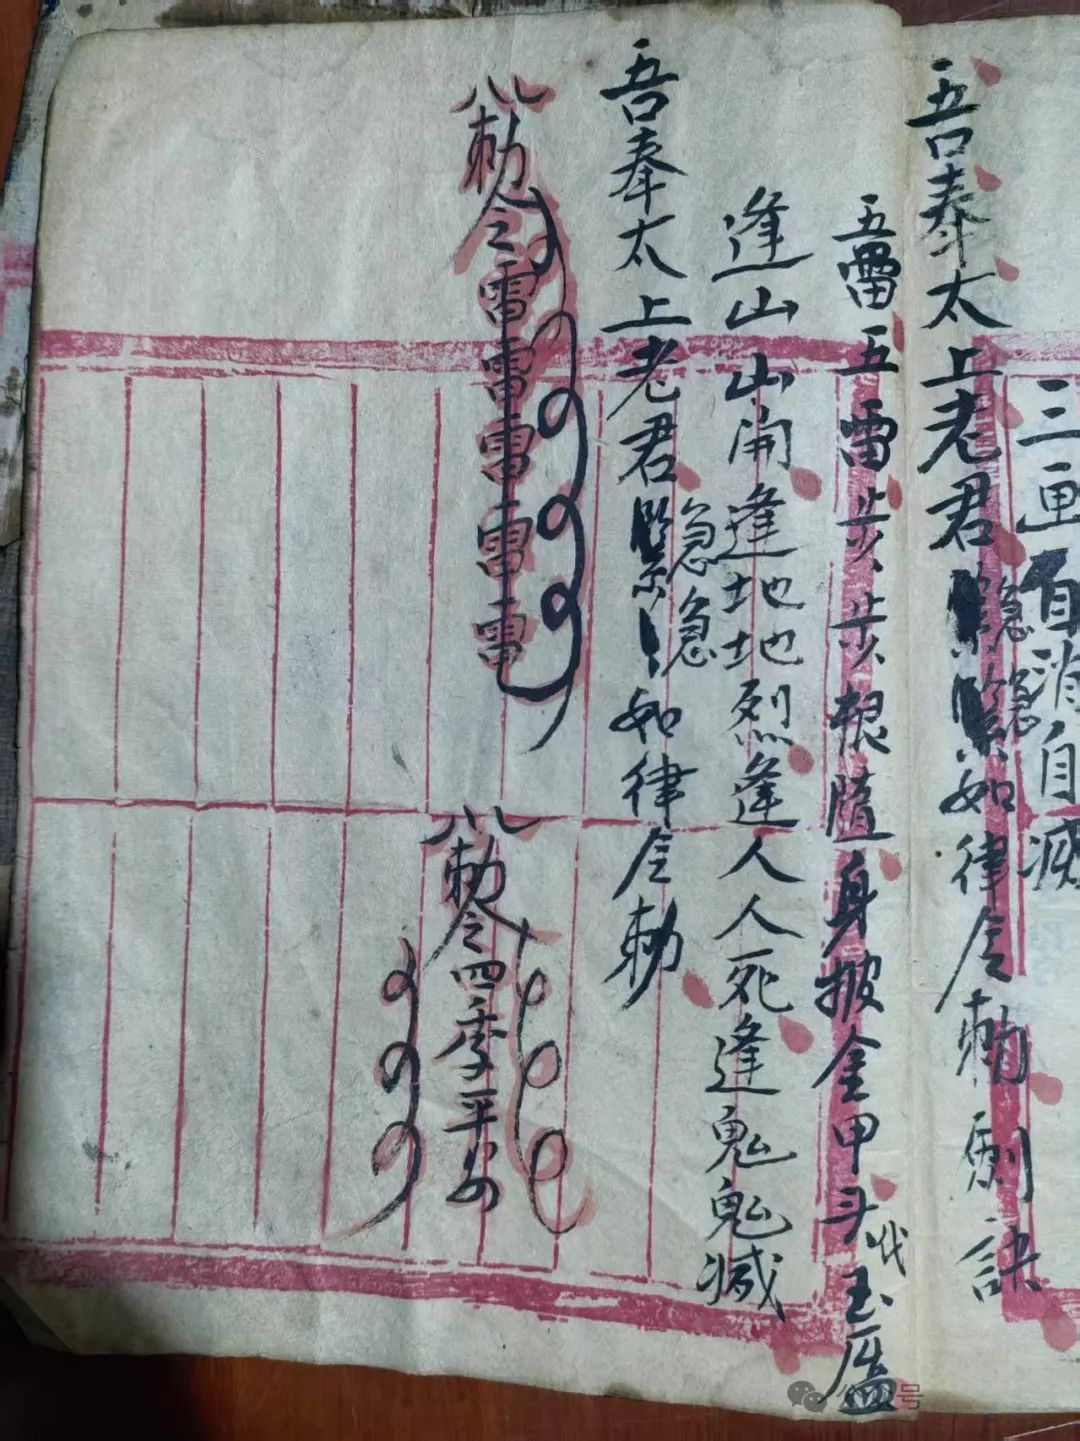 三画自消自滅
吾奉太上老君隐隐如律令勅 劍訣
五雷五雷步步根隨身披金甲头代玉厔
逢山山開逢地地烈逢人人死逢鬼鬼滅
吾奉太上老君緊急急如律令勅
勅令雷雷雷雷雷
勅令四季平安